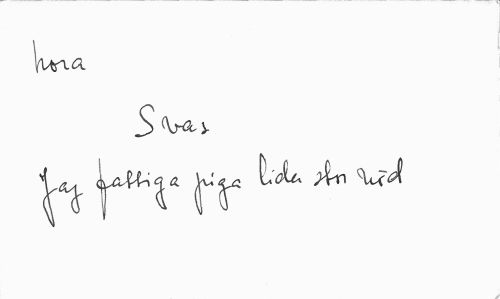 hora
Svas
Jag fattiga piga lider stor nöd